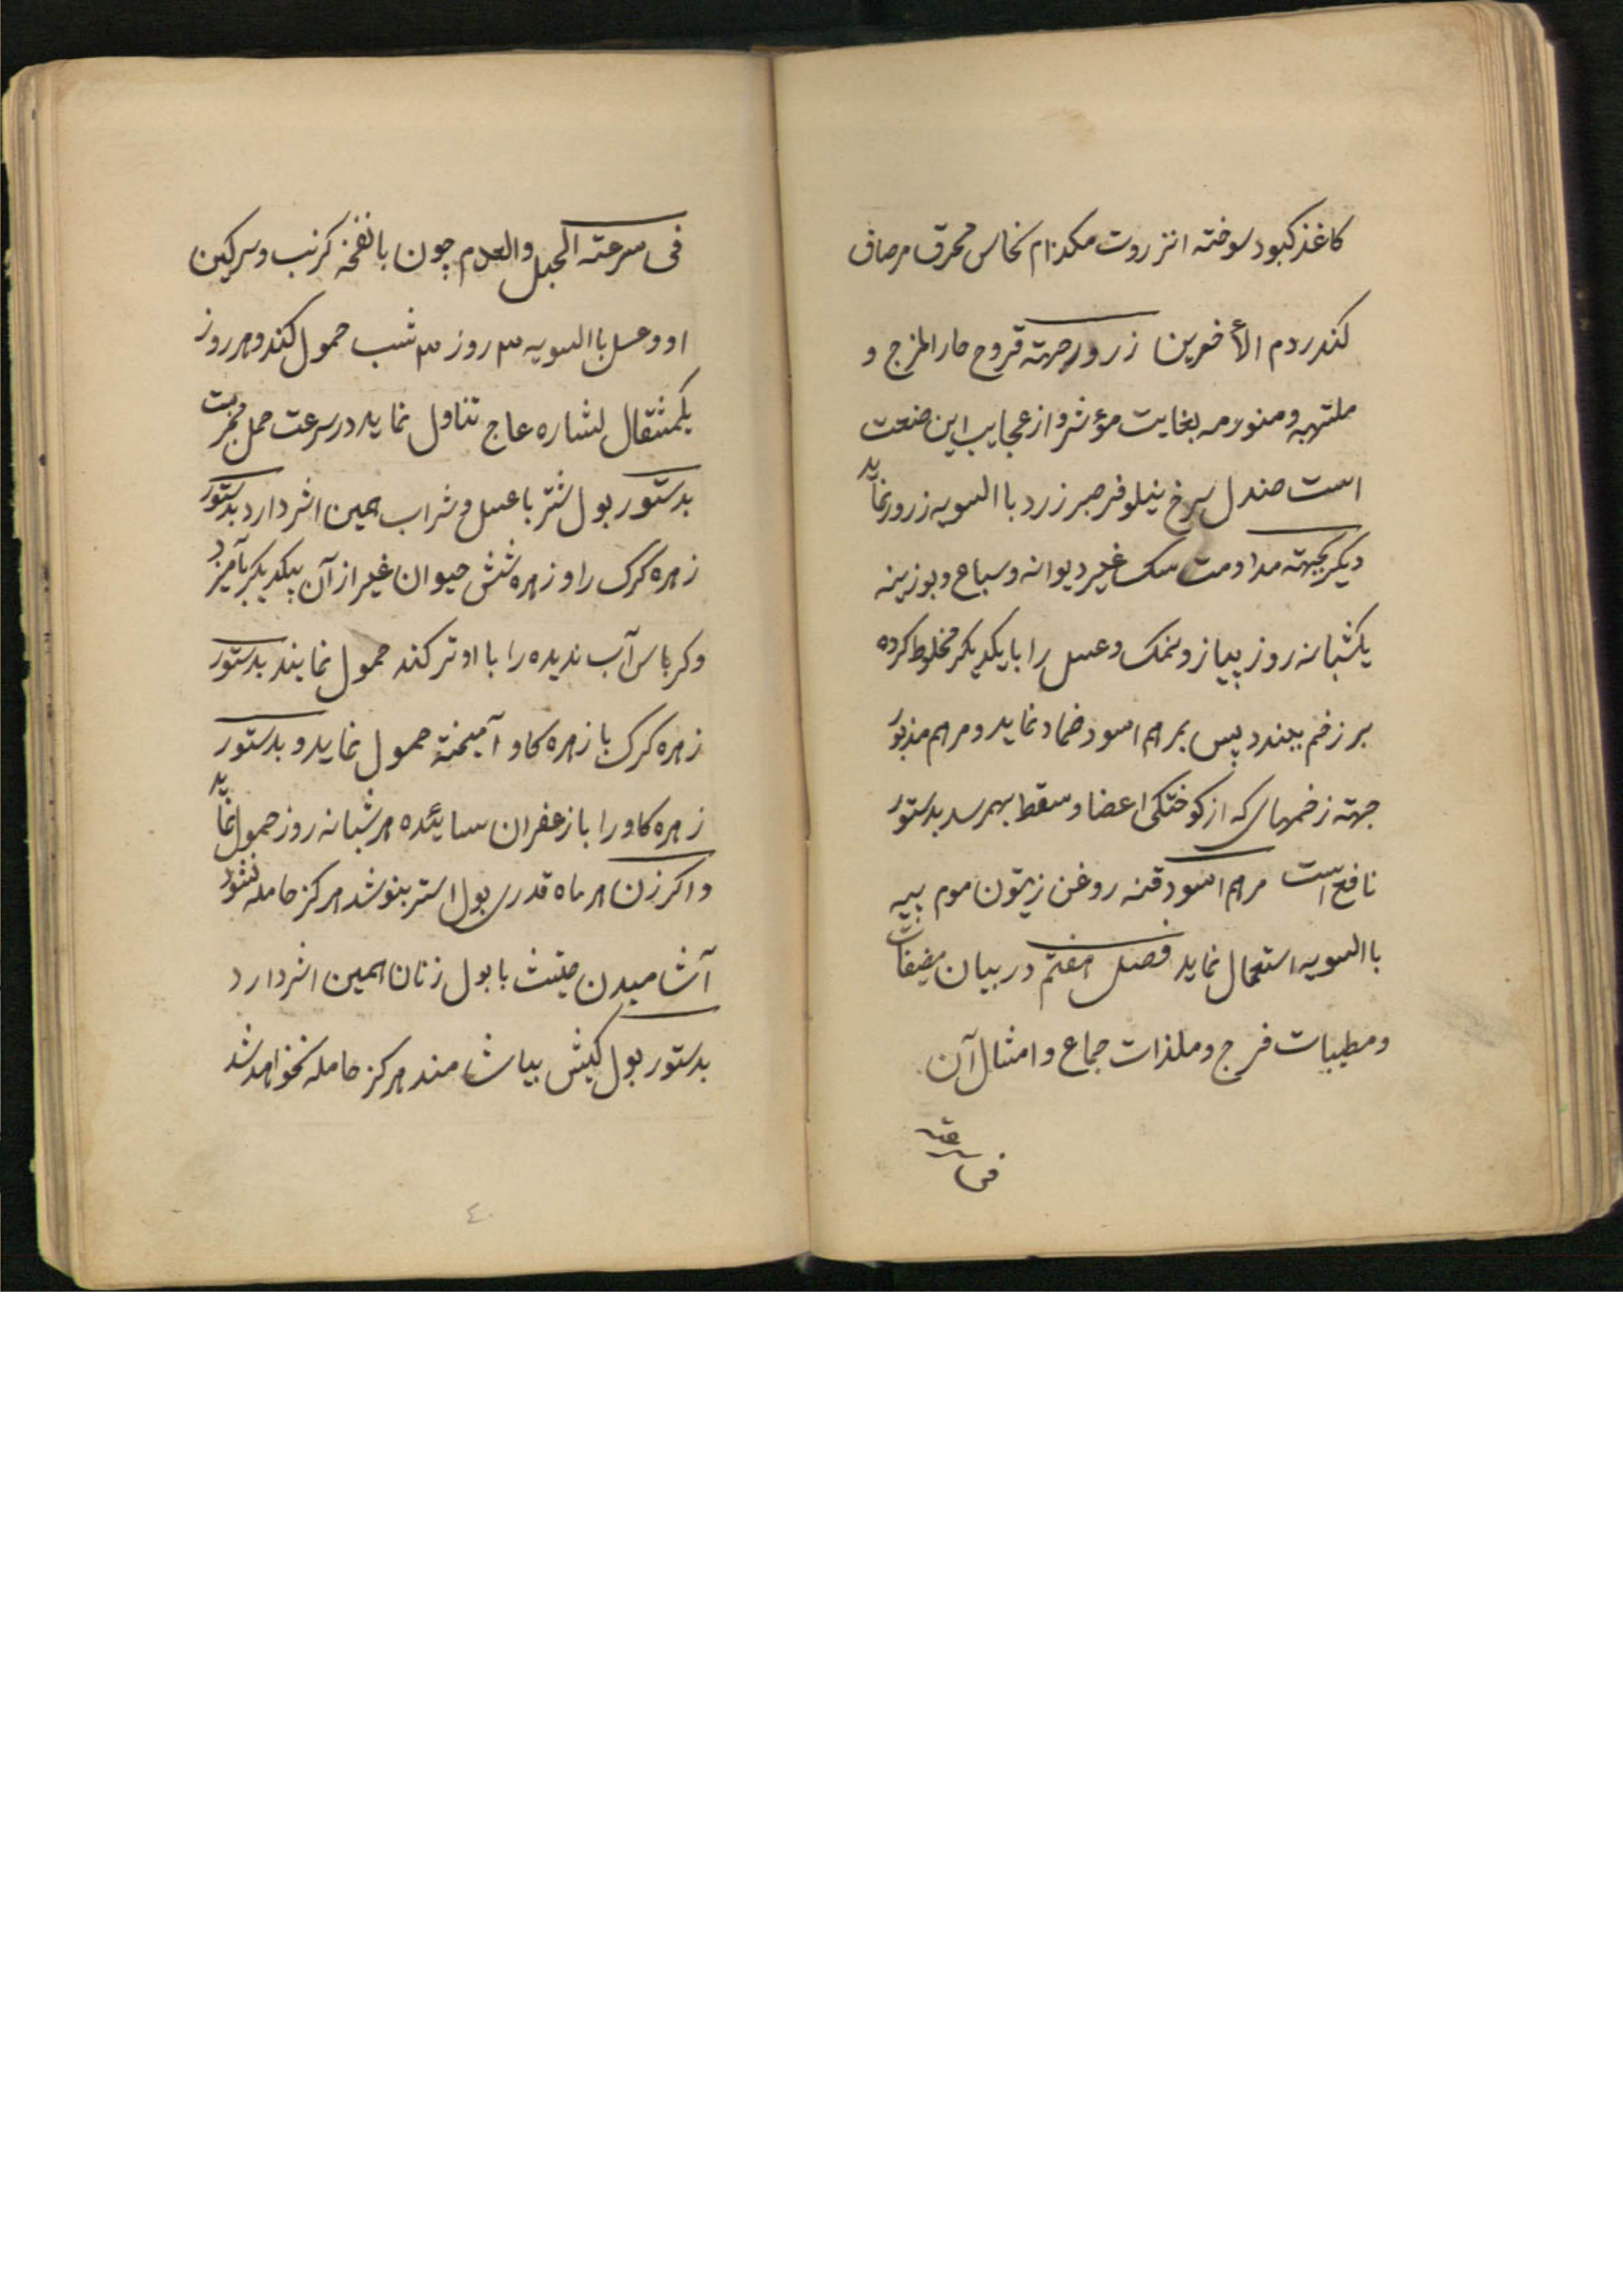 کاغذ کبود سوخته انزروت مکدام نحاس محرق مرصاف
کندر دم الأخوین زرور جهته قروح حار المزج و
ملتهبه و متورمه بغایت مؤثر و از عجایب این صنعت
است صندل سرخ نیلوفر صبر زرد با السویه زرور نماید
دیکر بجهته مداومت سک غیر دیوانه و سباع و بوزینه
یکشبانه روز پیاز و نمک و عسل را بایکدیکر مخلوط کرده
بر زخم ببندد پس بمرهم اسود ضماد نماید و مرهم مذبور
جهته زخمهای که از کوختکی اعضا و سقط بهمرسد بدستور
نافع است مرهم اسود قنه روغن زیتون موم پیه
با السویه استعمال نماید فصل هفتم در بیان مضیقات
و مطیبات فرج و ملذات جماع و امثال آن
فی سرعته
فی سرعته الحبل و العدم چون بانفخه کرنب و سرکین
او و عسل با السویه ۳ روز ۳ شب حمول کند و هر روز
یکمثقال نشاره عاج تناول نماید در سرعت حمل مجربست
بدستور بول شتر با عسل و شراب همین اثر دارد بدستور
زهره کرک را و زهره شش حیوان غیر از آن بیکدیکر بآمیزد
و کرباس آب ندیده را با او تر کند حمول نمایند بدستور
زهره کرک با زهره کاو آمیخته حمول نماید و بدستور
زهره کاو را با زعفران سائیده هر شبانه روز حمول نماید
و اکر زن هر ماه قدری بول استر بنوشد هرکز حامله نشود
آشامیدن خبث با بول زنان همین اثر دارد
بدستور بول کبش بیاشامند هرکز حامله نخواهد شد
٤٠